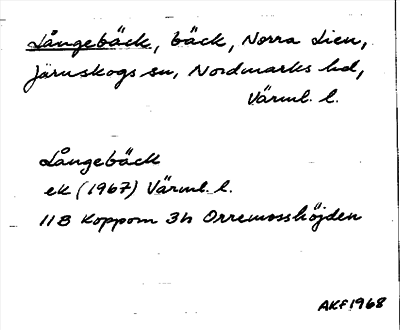 Långebäck, bäck, Norra Lien,
Järnskogs sn, Nordmarks hd,
Värml. l.
Långebäck
ek (1967) Värml. l.
11B Koppom 3h Orremosshöjden
AKF 1968